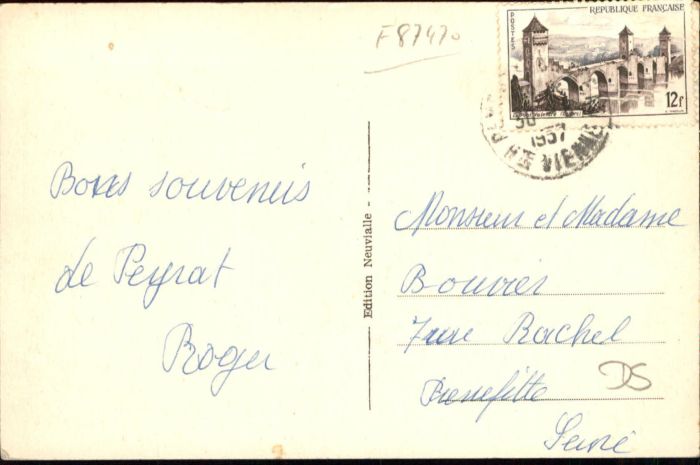 F87470
RÉPUBLIQUE FRANÇAISE
POSTES
12F
1957
HTE VIENNE
Bons souvenirs
de Peyrat
Roger
Edition Neuvialle -
Monsieur et Madame
Bouvier
7 rue Rachel
Pierrefitte
Seine
DS